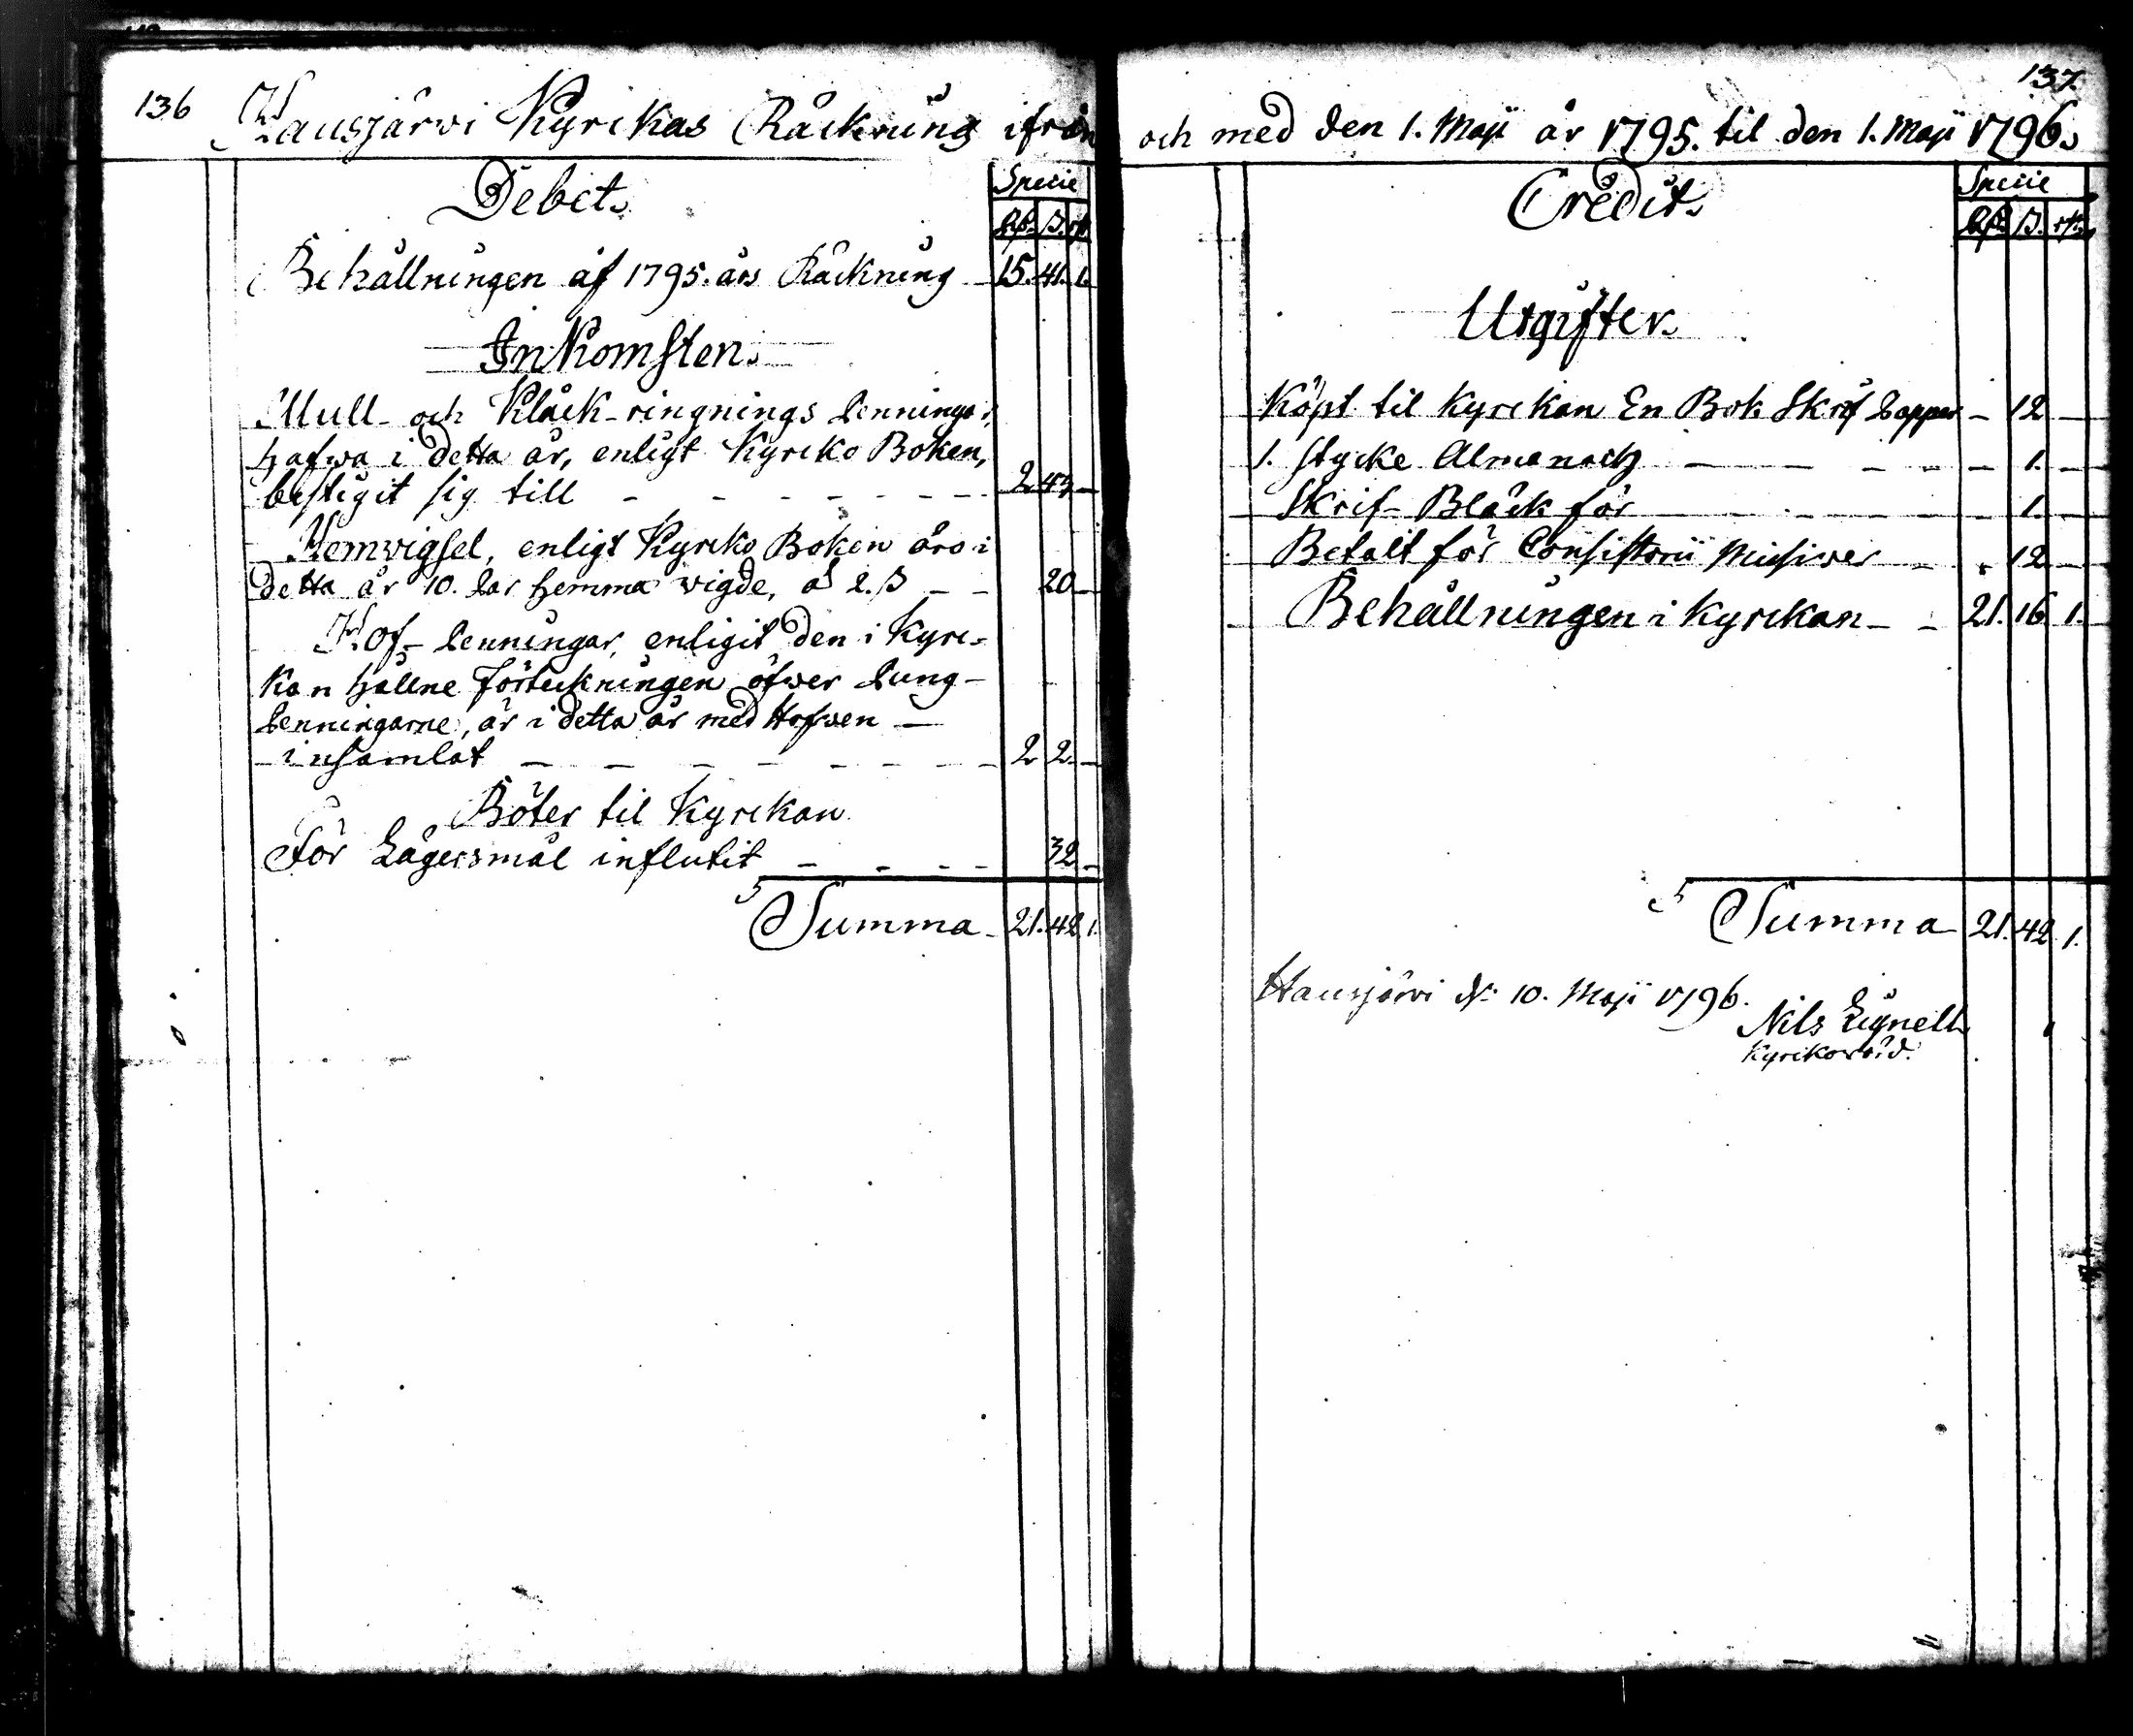 136
Hausjärvi Kyrckas Räckning ifrån
Debet.
Specie
Rd. ß. rst.
Behållningen af 1795. års Räckning 15. 41. 1.
Inkomsten.
Mull- och Klåck-ringnings Penningar,
hafwa i detta år, enligt Kyrcko Boken,
bestigit sig till - - - - - - - 2 43 -
Hemwigsel, enligt Kyrcko Boken äro i
detta år 10. Par hemma wigde, a 2. ß - - 20 -
Hof- Penningar, enligit den i Kyrc-
kan hållne Förteckningen öfwer Pung-
Penningarne, är i detta år med Hofwen -
insamlat - - - - - - - - 2 2 -
Böter til Kyrckan
För Lägersmål influtit - - - - 32 -
Summa - 21. 42. 1.
137.
och med den 1. Maji år 1795. til den 1. Maji 1796.
Credit.
Specie
Rd. ß. rst.
Utgifter.
Köpt til Kyrckan En Bok Skrif Papper - 12 -
1. stycke Almanach - - - - - 1. -
Skrif- Bläck för - - - - - 1. -
Betalt för Consistorii Missiver - - 12 -
Behållningen i Kyrckan - - 21. 16. 1.
Summa 21. 42. 1.
Hausjärvi d: 10. Maji 1796.
Nils Lignell
Kyrckovärd.